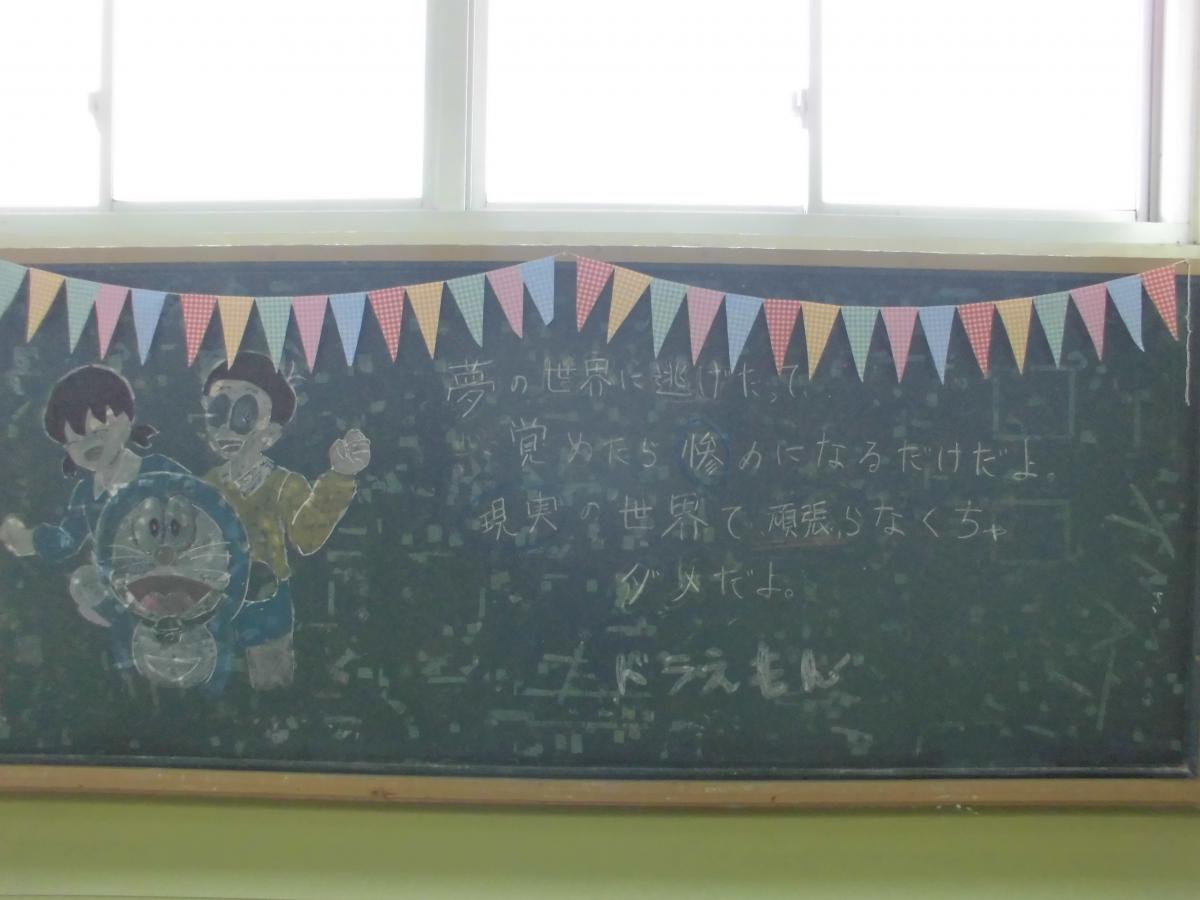 夢の世界に逃げたって
覚めたら惨めになるだけだよ。
現実の世界で頑張らなくちゃ
ダメだよ。
ドラえもん